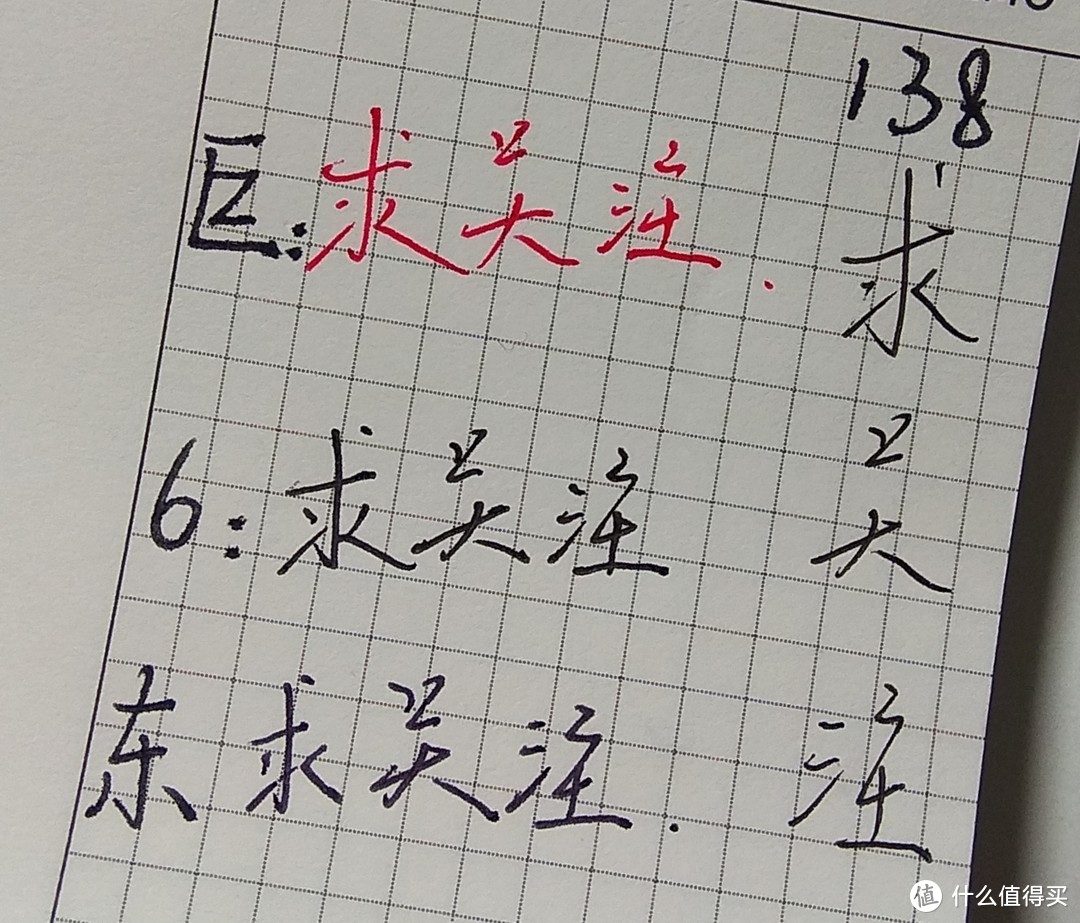 138
巨:求关注.
6:求关注
东求关注.
求
关
注
值 什么值得买